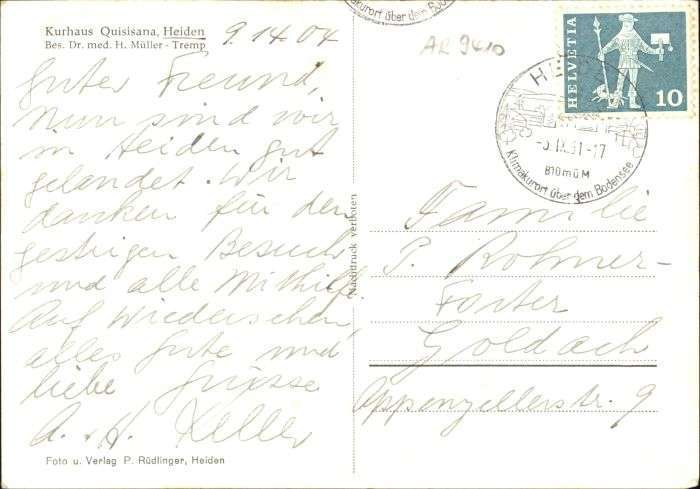 Kurhaus Quisisana, Heiden
Bes. Dr. med. H. Müller - Tremp
9.14 04
AR 9410
Guter Freund,
Nun sind wir
in Heiden gut
gelandet. Wir
danken für den
gestrigen Besuch
und alle Mithilfe.
Auf Wiedersehen,
alles Gute und
liebe Grüsse
A. + H. Keller
Foto u. Verlag P. Rüdlinger, Heiden
Nachdruck verboten
Klimakurort über dem Bodensee
HELVETIA
10
IX.61-17
810 m ü M
Klimakurort über dem Bodensee
Familie
P. Rohner-
Forster
Goldach
Appenzellerstr. 9